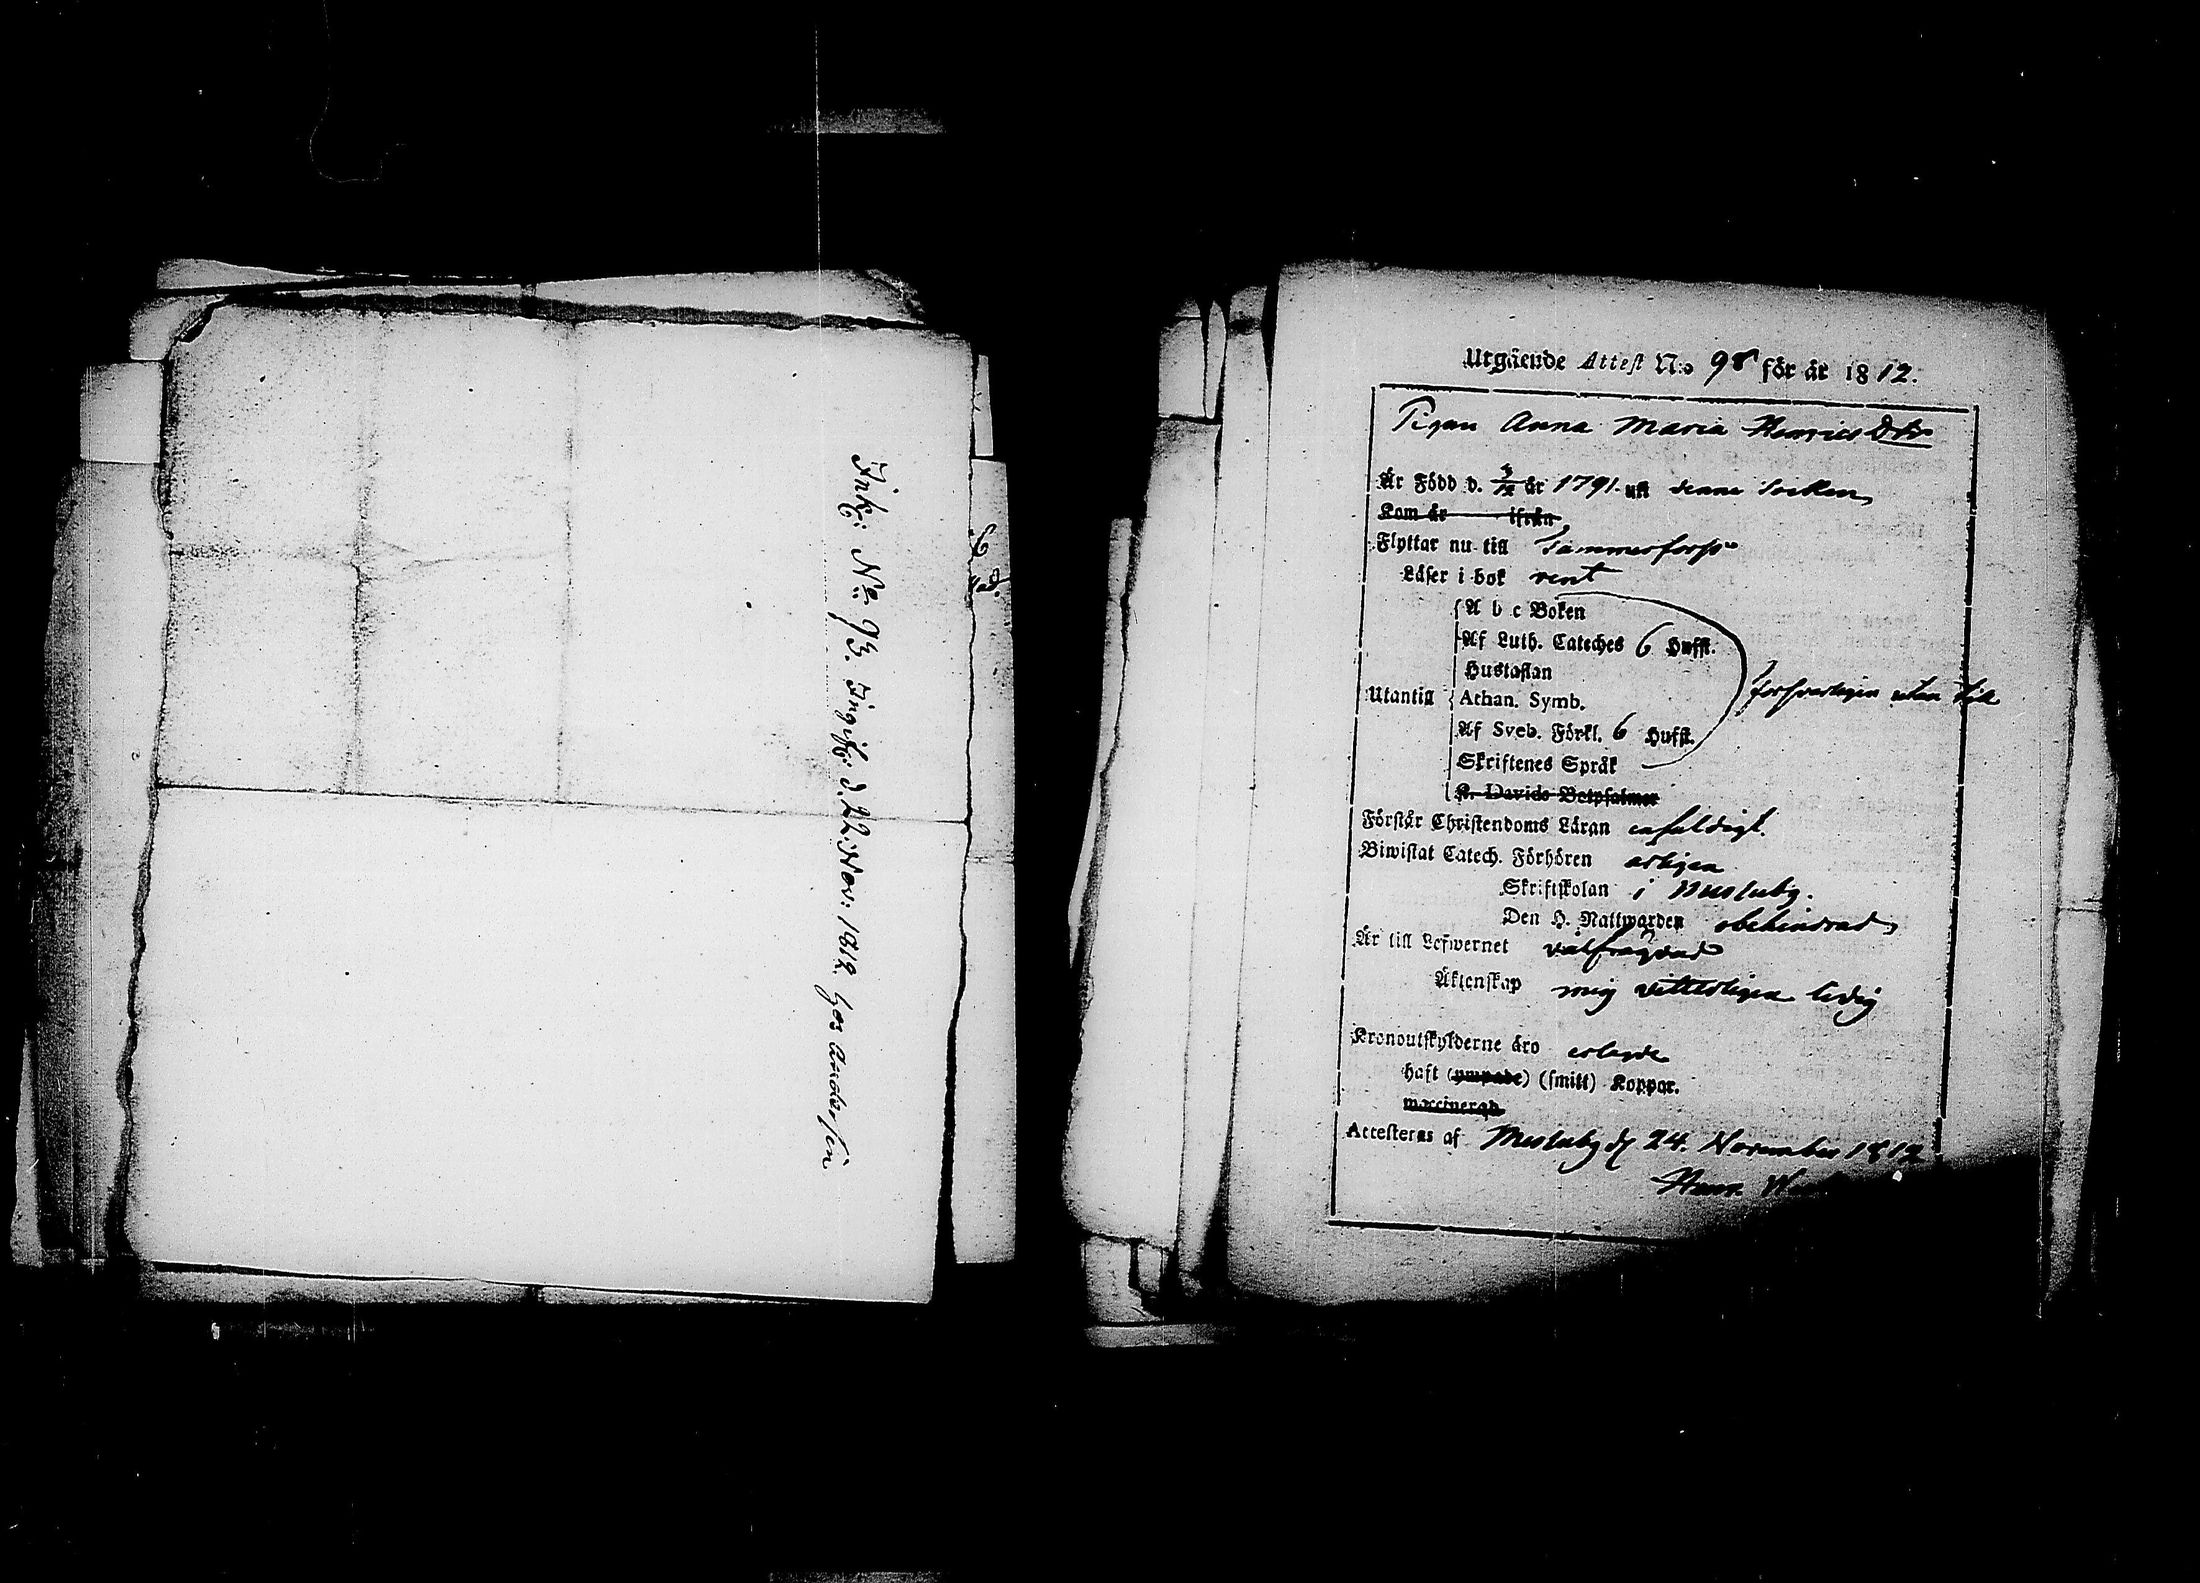 Ink: No 93. Ingifv: d. 22. Nov: 1812 hos Anders sin
6
Utgående Attest N:o 98 för år 1812.
Pigan Anna Maria Henrics Dtr
Är Född d. 3/12 år 1791. uti denne Socken
Kom år ifrån
Flyttar nu till Tammerfors
Läser i bok rent
A b c Boken
Af Luth. Cateches 6 Hufst.
Hustaflan
Utantill Athan. Symb. försvarligen utan till
Af Sveb. Förkl. 6 Hufst.
Skriftenes Språk
K. Davids Botpsalmer
Förstår Christendoms Läran enfaldigt.
Biwistat Catech. Förhören årligen
Skriftskolan i Messuby.
Den H. Nattwarden obehindrad
Är till Lefwernet välfrägdad
Äktenskap mig vitterligen ledig
Kronoutskylderne äro erlagde
haft (ympade) (smitt) Koppor.
waccinerad
Attesteras af Messuby d. 24. November 1812
Henr.